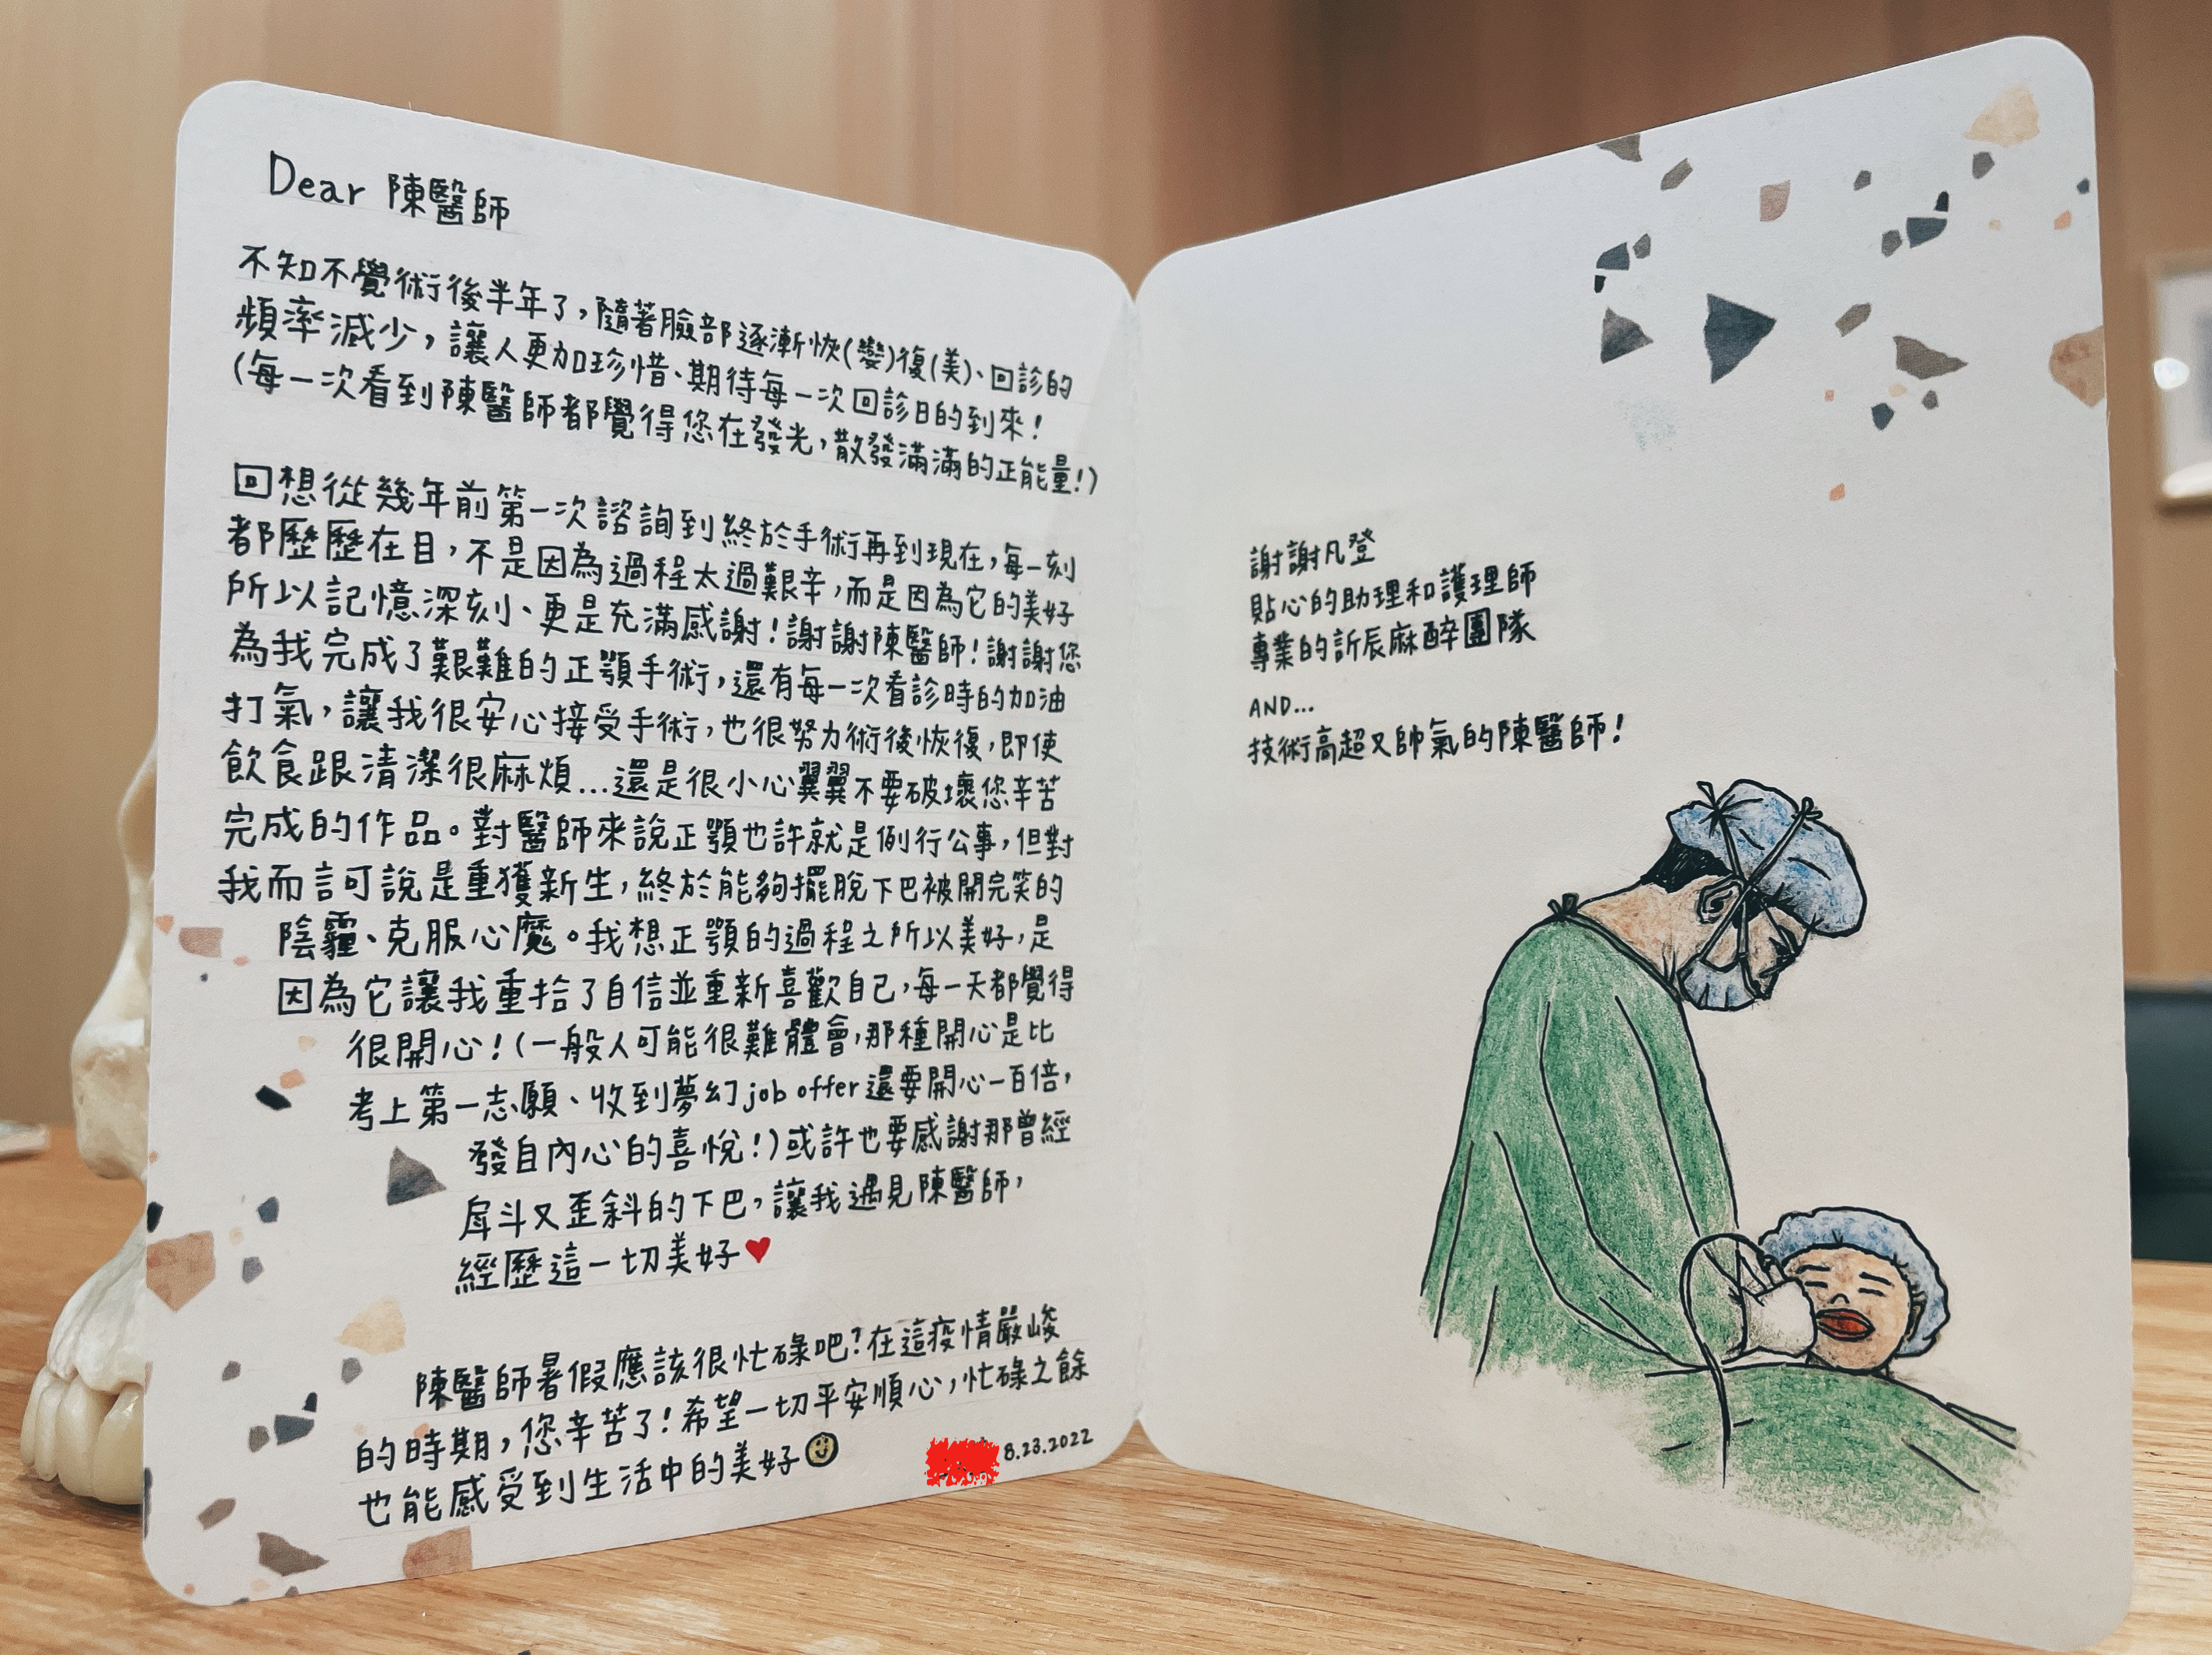 Dear 陳醫師
不知不覺術後半年了,隨著臉部逐漸恢(變)復(美)、回診的
頻率減少,讓人更加珍惜、期待每一次回診日的到來!
(每一次看到陳醫師都覺得您在發光,散發滿滿的正能量!)
回想從幾年前第一次諮詢到終於手術再到現在,每一刻
都歷歷在目,不是因為過程太過艱辛,而是因為它的美好
所以記憶深刻、更是充滿感謝!謝謝陳醫師!謝謝您
為我完成了艱難的正顎手術,還有每一次看診時的加油
打氣,讓我很安心接受手術,也很努力術後恢復,即使
飲食跟清潔很麻煩...還是很小心翼翼不要破壞您辛苦
完成的作品。對醫師來說正顎也許就是例行公事,但對
我而言可說是重獲新生,終於能夠擺脫下巴被開完笑的
陰霾、克服心魔。我想正顎的過程之所以美好,是
因為它讓我重拾了自信並重新喜歡自己,每一天都覺得
很開心!(一般人可能很難體會,那種開心是比
考上第一志願、收到夢幻job offer還要開心一百倍,
發自內心的喜悅!)或許也要感謝那曾經
戽斗又歪斜的下巴,讓我遇見陳醫師,
經歷這一切美好♥
陳醫師暑假應該很忙碌吧?在這疫情嚴峻
的時期,您辛苦了!希望一切平安順心,忙碌之餘
也能感受到生活中的美好☺
8.23.2022
謝謝凡登
貼心的助理和護理師
專業的訢辰麻醉團隊
AND...
技術高超又帥氣的陳醫師!